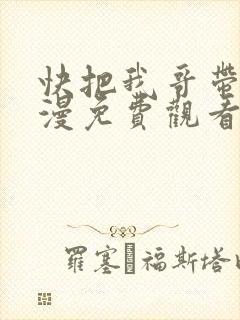 快把我哥帶
漫免費觀看
羅塞 福斯塔